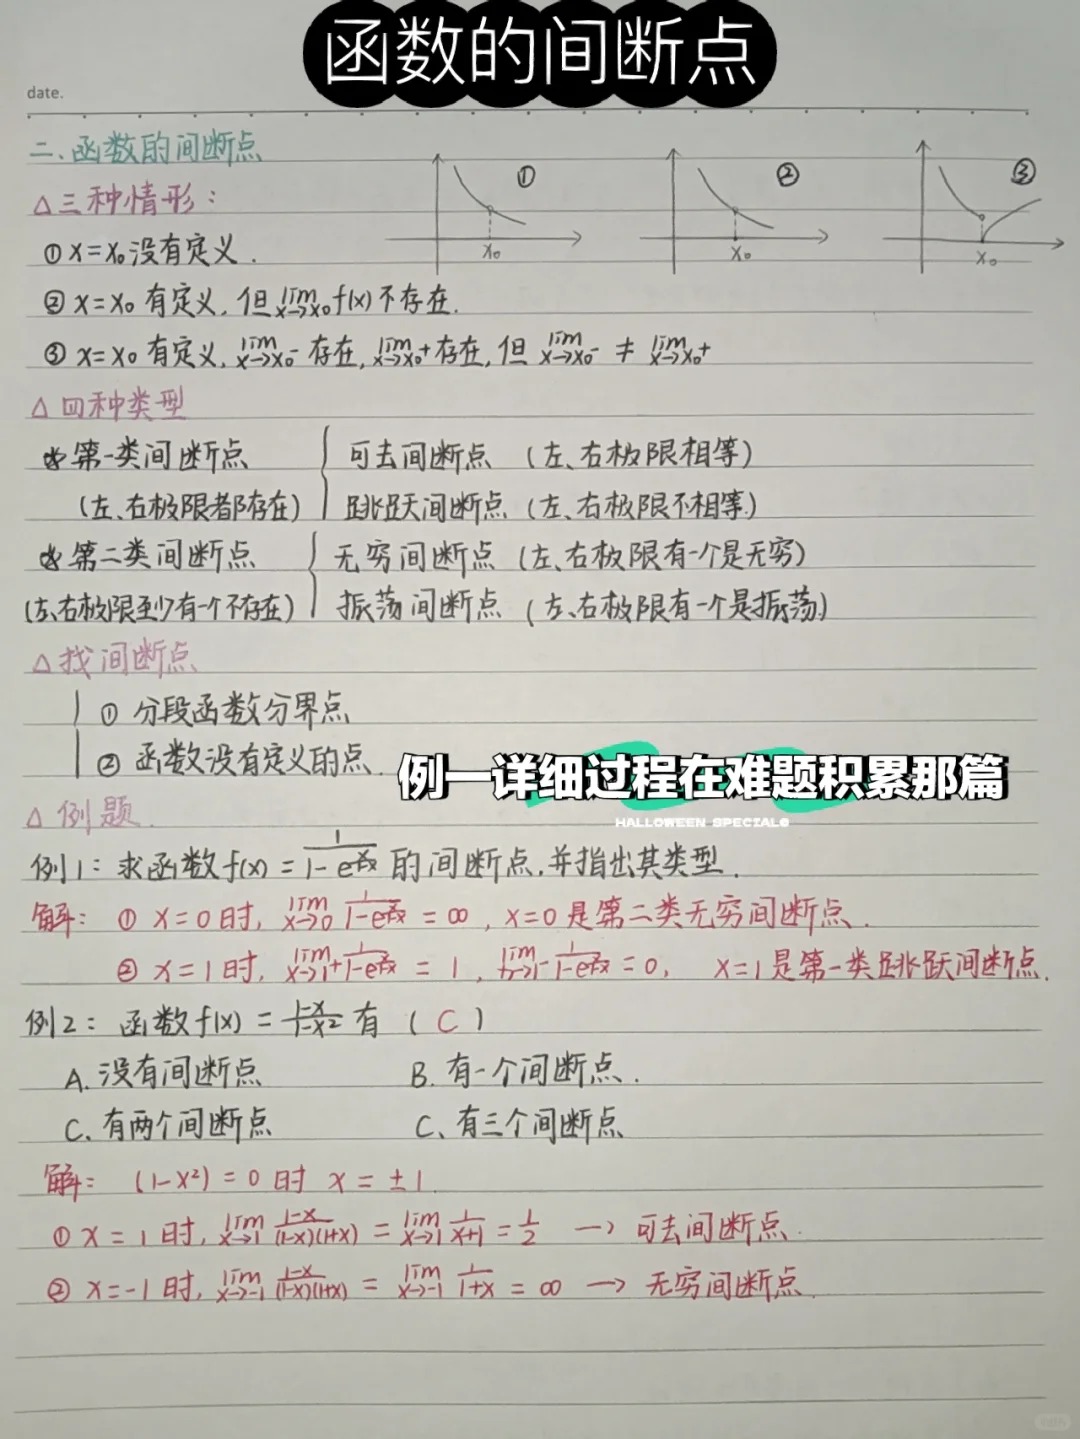 函数的间断点
date.
二、函数的间断点
△三种情形：
① x=x₀没有定义.
② x=x₀有定义,但lim x→x₀ f(x)不存在.
③ x=x₀有定义, lim x→x₀⁻ 存在, lim x→x₀⁺ 存在, 但 lim x→x₀⁻ ≠ lim x→x₀⁺
① x₀
② x₀
③ x₀
△四种类型
☆第一类间断点 { 可去间断点 (左、右极限相等)
(左、右极限都存在) 跳跃间断点 (左、右极限不相等.)
☆第二类间断点 { 无穷间断点 (左、右极限有一个是无穷)
(左、右极限至少有一个不存在) 振荡间断点 (左、右极限有一个是振荡)
△找间断点
① 分段函数分界点
② 函数没有定义的点.
例一详细过程在难题积累那篇
HALLOWEEN SPECIAL@
△例题.
例1: 求函数f(x) = 1/(1-e^(x/(1-x))) 的间断点,并指出其类型.
解: ① x=0时, lim x→0 1/(1-e^(x/(1-x))) = ∞, x=0是第二类无穷间断点.
② x=1时, lim x→1⁺ 1/(1-e^(x/(1-x))) = 1, lim x→1⁻ 1/(1-e^(x/(1-x))) = 0, x=1是第一类跳跃间断点.
例2: 函数f(x) = (1-x)/(1-x²) 有 ( C )
A. 没有间断点 B. 有一个间断点.
C. 有两个间断点 C. 有三个间断点
解: (1-x²)=0时 x=±1
① x=1时, lim x→1 (1-x)/((1-x)(1+x)) = lim x→1 1/(x+1) = 1/2 → 可去间断点.
② x=-1时, lim x→-1 (1-x)/((1-x)(1+x)) = lim x→-1 1/(1+x) = ∞ → 无穷间断点.